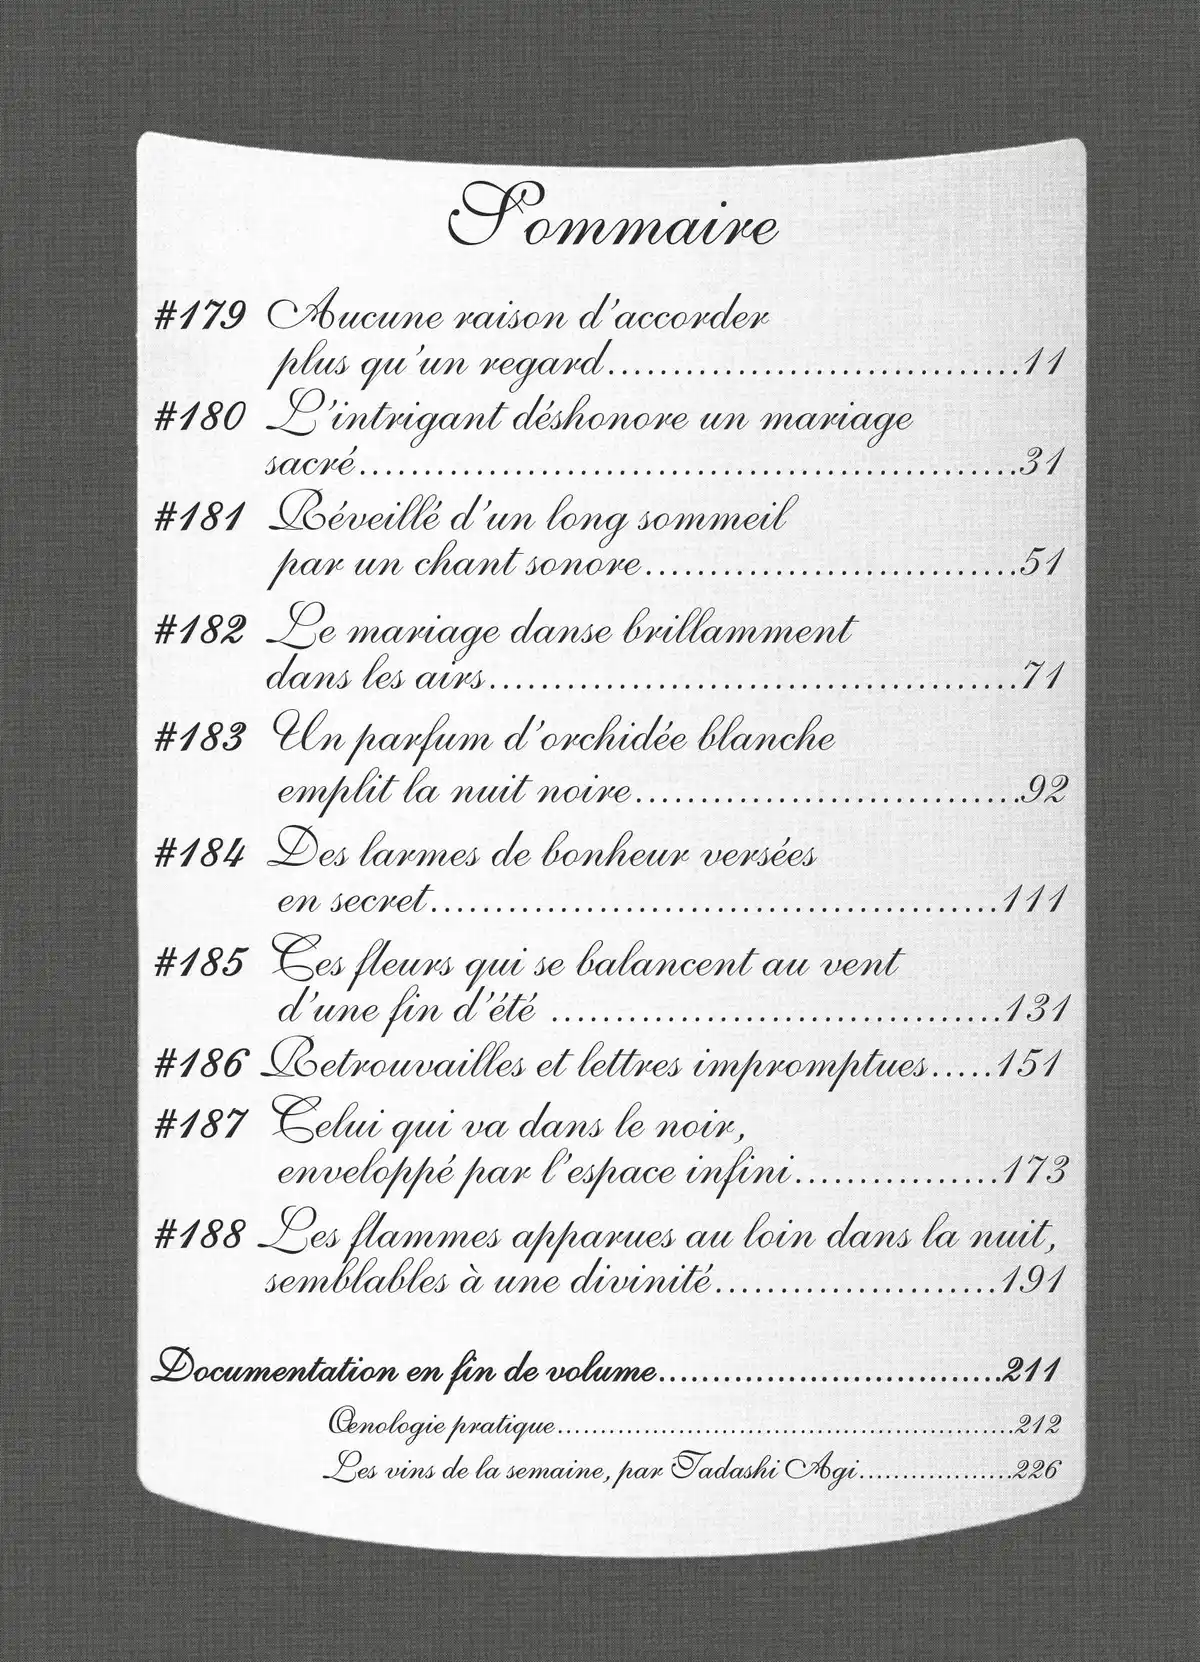 Sommaire
#179 Aucune raison d'accorder
plus qu'un regard................................11
#180 L'intrigant déshonore un mariage
sacré...................................................31
#181 Réveillé d'un long sommeil
par un chant sonore.............................51
#182 Le mariage danse brillamment
dans les airs.........................................71
#183 Un parfum d'orchidée blanche
emplit la nuit noire..............................92
#184 Des larmes de bonheur versées
en secret............................................111
#185 Ces fleurs qui se balancent au vent
d'une fin d'été ...................................131
#186 Retrouvailles et lettres impromptues.....151
#187 Celui qui va dans le noir,
enveloppé par l'espace infini................173
#188 Les flammes apparues au loin dans la nuit,
semblables à une divinité......................191
Documentation en fin de volume...............................211
Œnologie pratique...................................................212
Les vins de la semaine, par Tadashi Agi.................226